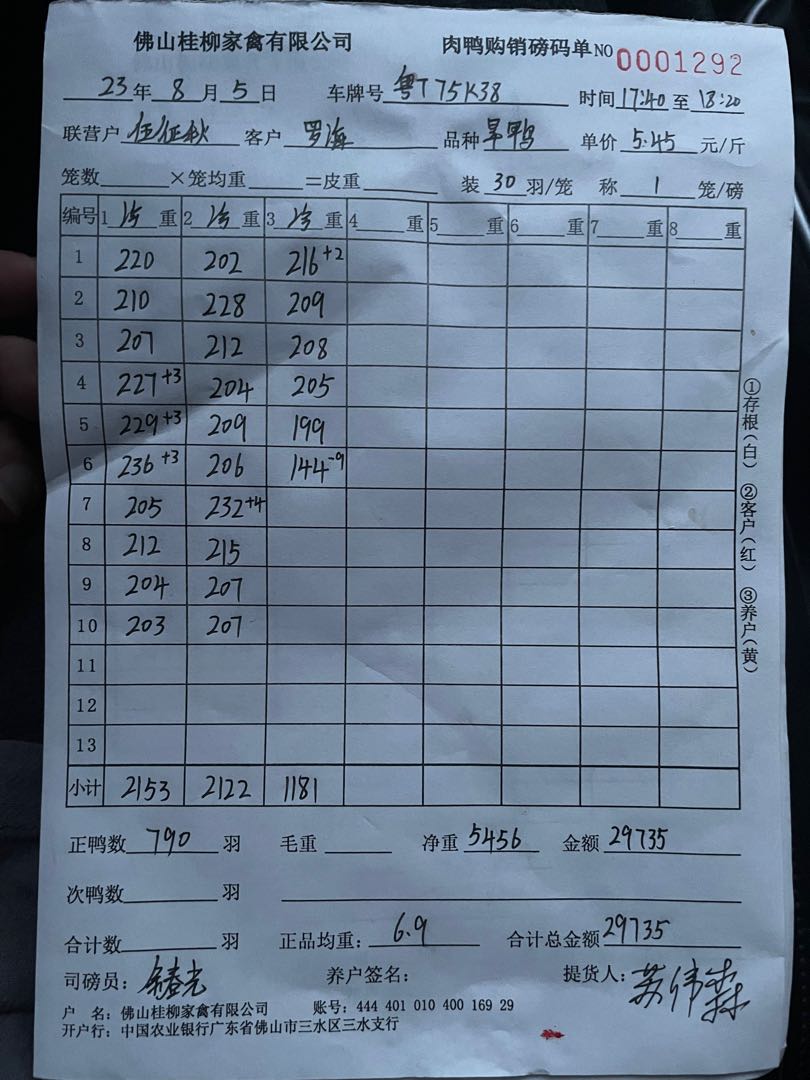 佛山桂柳家禽有限公司 肉鸭购销磅码单 NO 0001292
23年 8月 5日 车牌号 粤T75K38 时间 17:40 至 18:20
联营户 伍征秋 客户 罗海 品种 旱鸭 单价 5.45 元/斤
笼数 ×笼均重 =皮重 装 30 羽/笼 称 1 笼/磅
编号 1 净 重 2 净 重 3 净 重 4 重 5 重 6 重 7 重 8 重
1 220 202 216+2
2 210 228 209
3 207 212 208
4 227+3 204 205
5 229+3 209 199
6 236+3 206 144-9
7 205 232+4
8 212 215
9 204 207
10 203 207
11
12
13
小计 2153 2122 1181
①存根(白) ②客户(红) ③养户(黄)
正鸭数 790 羽 毛重 净重 5456 金额 29735
次鸭数 羽
合计数 羽 正品均重: 6.9 合计总金额 29735
司磅员: 养户签名: 提货人: 苏伟森
户 名: 佛山桂柳家禽有限公司 账号: 444 401 010 400 169 29
开户行: 中国农业银行广东省佛山市三水区三水支行